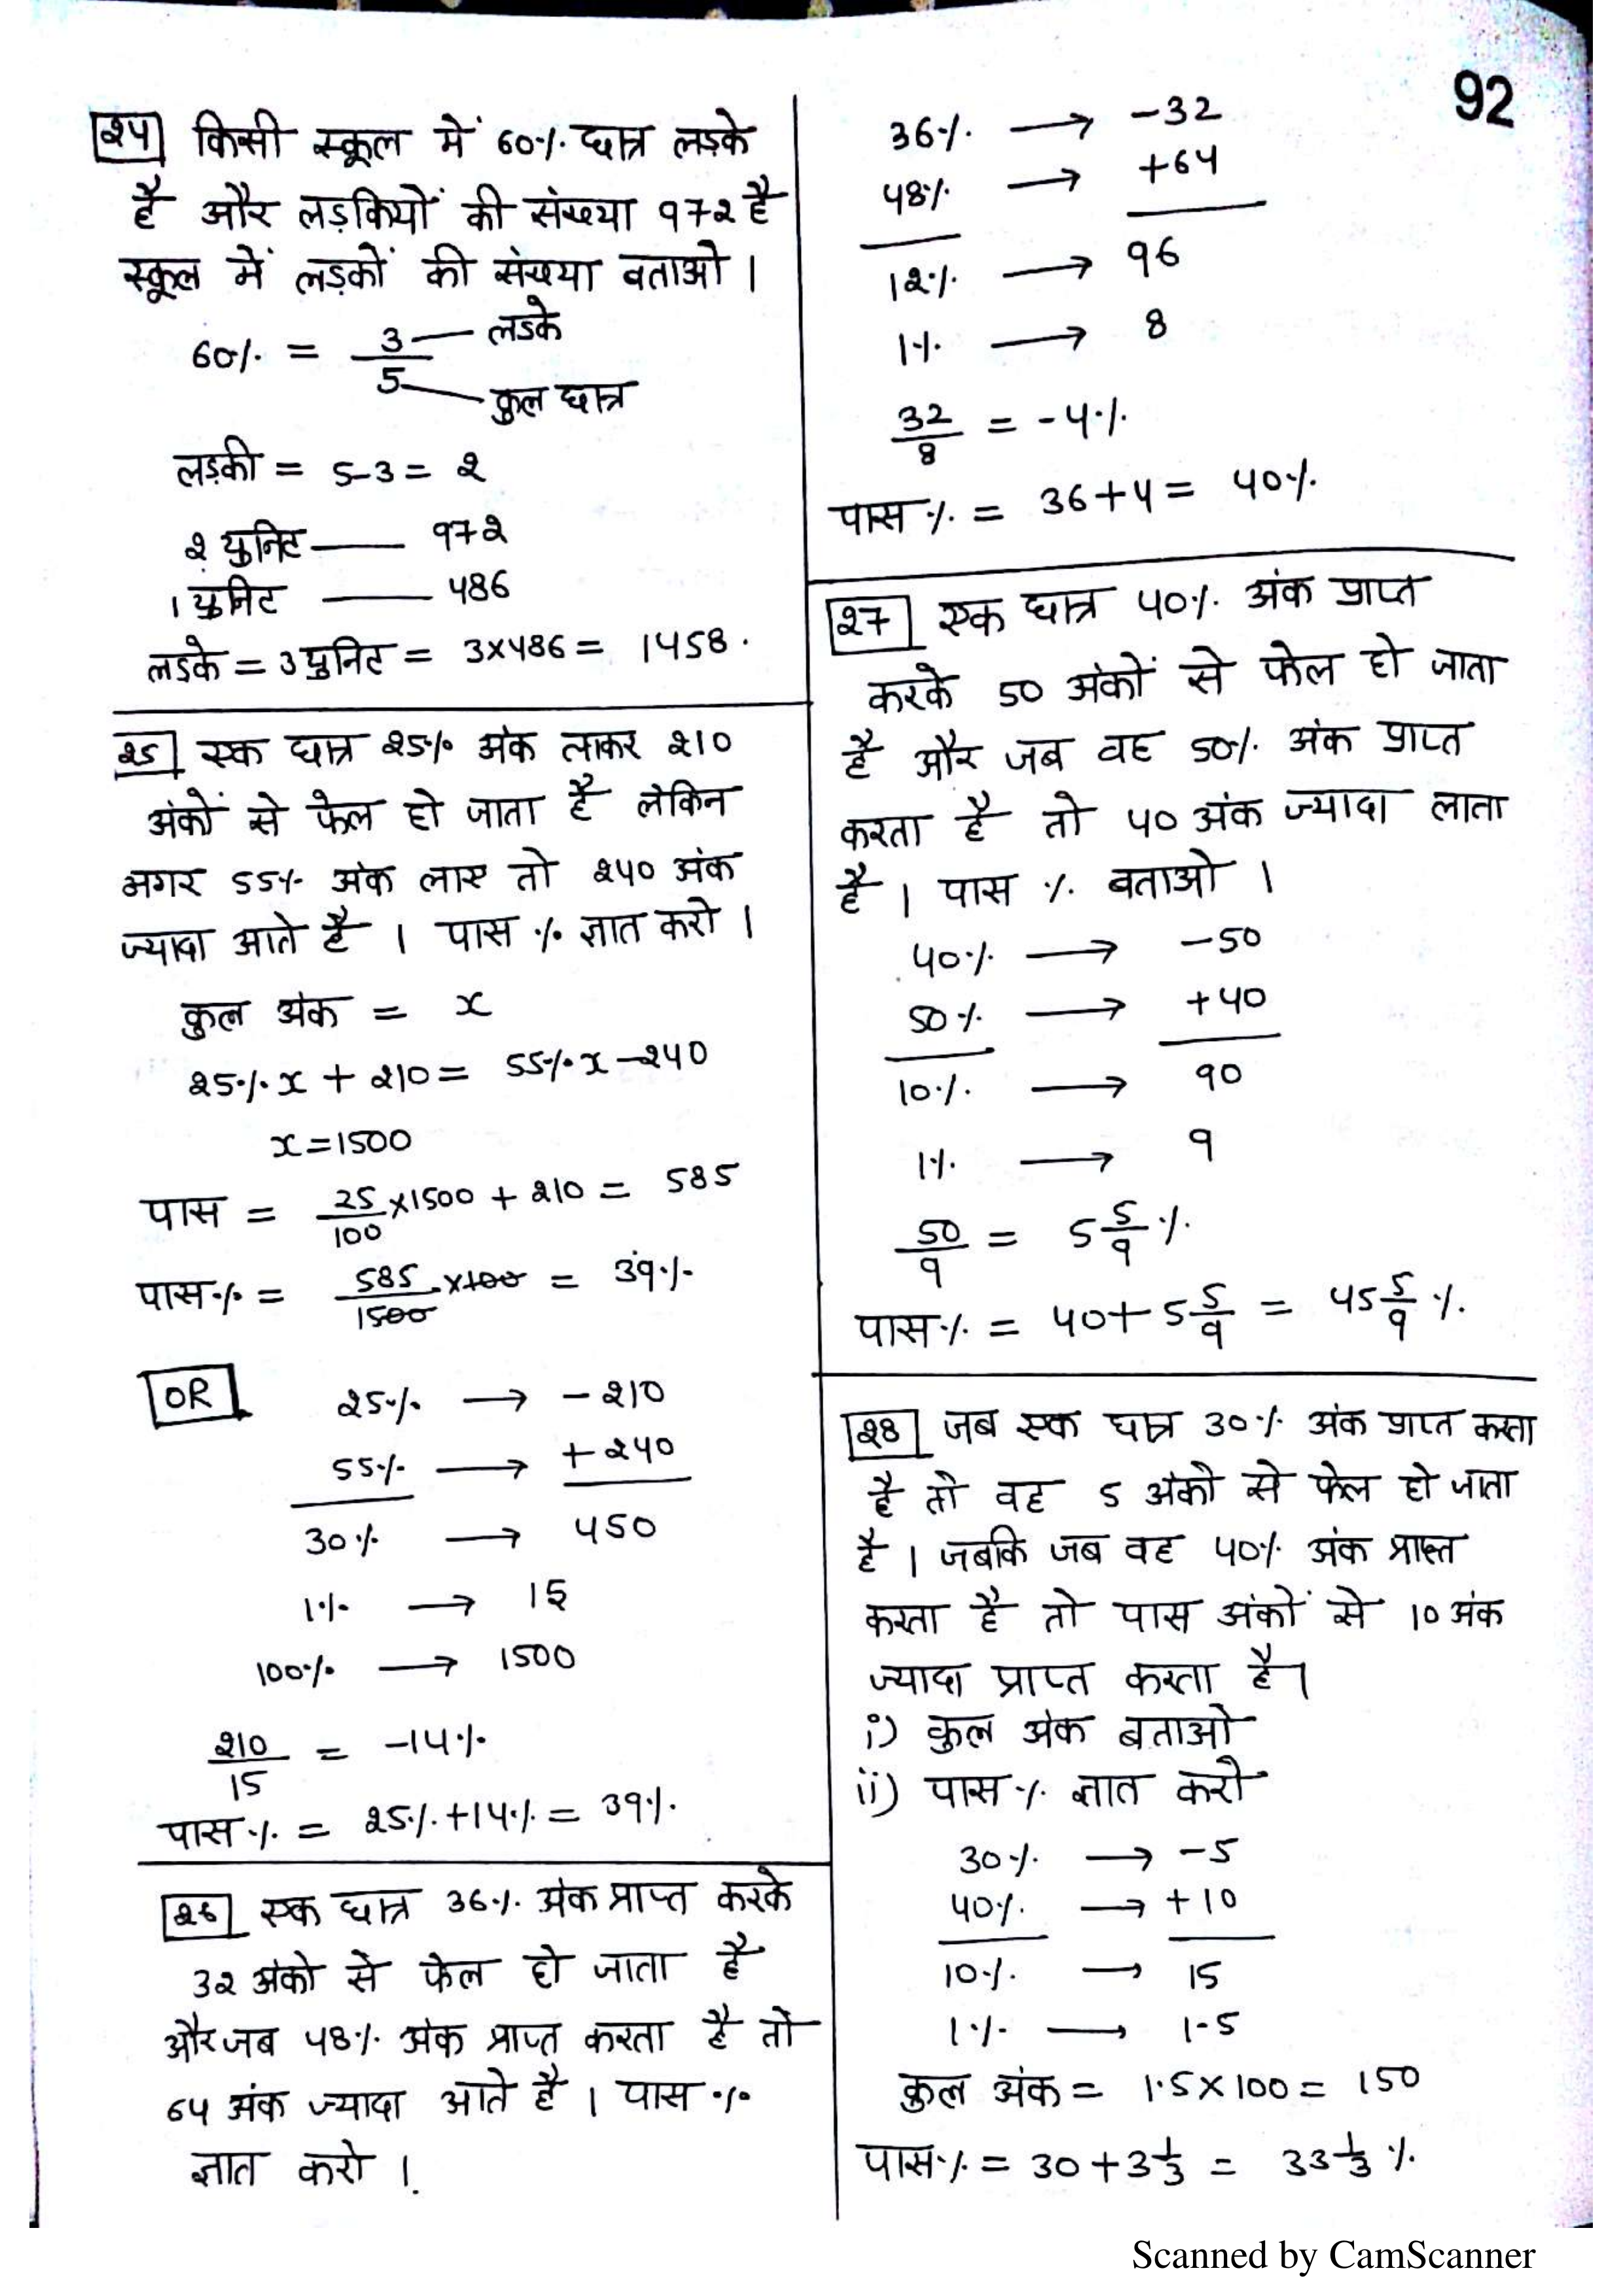 92
24 किसी स्कूल में 60% छात्र लड़के
है और लड़कियों की संख्या 972 है
स्कूल में लड़कों की संख्या बताओ ।
60% = 3/5 — लडके
— कुल छात्र
लड़की = 5-3 = 2
2 युनिट —— 972
1 युनिट —— 486
लडके = 3 युनिट = 3×486 = 1458.
25 एक छात्र 25% अंक लाकर 210
अंकों से फेल हो जाता है लेकिन
अगर 55% अंक लाए तो 240 अंक
ज्यादा आते है । पास % ज्ञात करो ।
कुल अंक = x
25% x + 210 = 55% x - 240
x = 1500
पास = 25/100 × 1500 + 210 = 585
पास % = 585/1500 × 100 = 39%
OR
25% → - 210
55% → + 240
30% → 450
1% → 15
100% → 1500
210/15 = -14%
पास % = 25% + 14% = 39%.
26 एक छात्र 36% अंक प्राप्त करके
32 अंको से फेल हो जाता है
और जब 48% अंक प्राप्त करता है तो
64 अंक ज्यादा आते है । पास %
ज्ञात करो ।
36% → -32
48% → +64
12% → 96
1% → 8
32/8 = -4%
पास % = 36+4 = 40%
27 एक छात्र 40% अंक प्राप्त
करके 50 अंकों से फेल हो जाता
है और जब वह 50% अंक प्राप्त
करता है तो 40 अंक ज्यादा लाता
है । पास % बताओ ।
40% → -50
50% → +40
10% → 90
1% → 9
50/9 = 5 5/9 %
पास % = 40 + 5 5/9 = 45 5/9 %.
28 जब एक छात्र 30% अंक प्राप्त करता
है तो वह 5 अंको से फेल हो जाता
है । जबकि जब वह 40% अंक प्राप्त
करता है तो पास अंकों से 10 अंक
ज्यादा प्राप्त करता है।
i) कुल अंक बताओ
ii) पास % ज्ञात करो
30% → -5
40% → +10
10% → 15
1% → 1.5
कुल अंक = 1.5 × 100 = 150
पास % = 30 + 3 1/3 = 33 1/3 %
Scanned by CamScanner